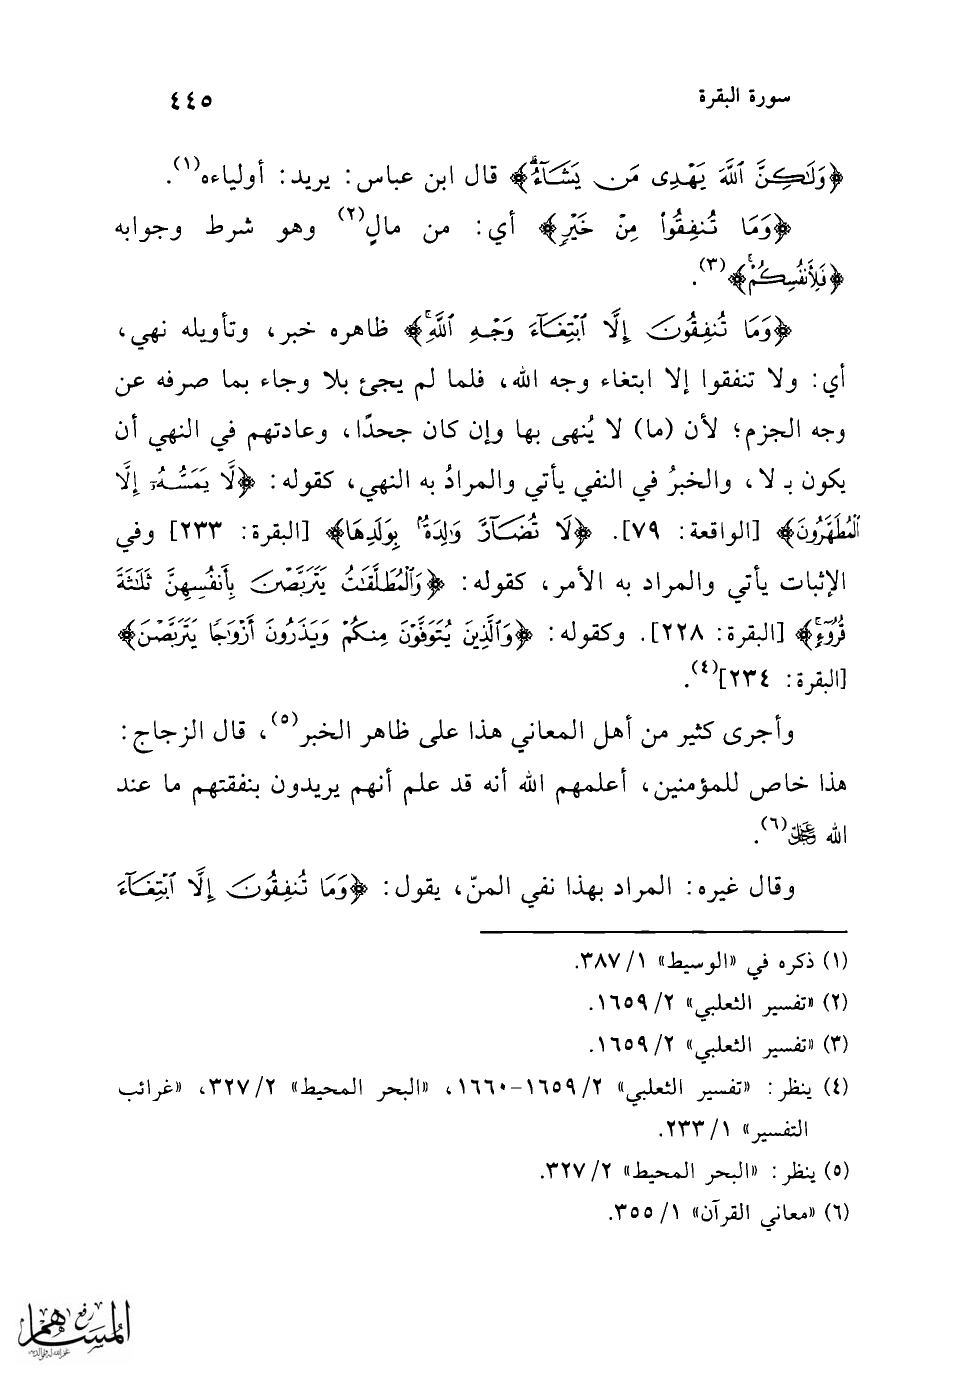 سورة البقرة ٤٤٥
﴿وَلَٰكِنَّ ٱللَّهَ يَهْدِى مَن يَشَآءُ ۗ﴾ قال ابن عباس: يريد: أولياءه(١).
﴿وَمَا تُنفِقُوا۟ مِنْ خَيْرٍ﴾ أي: من مالٍ(٢) وهو شرط وجوابه
﴿فَلِأَنفُسِكُمْ ۚ﴾(٣).
﴿وَمَا تُنفِقُونَ إِلَّا ٱبْتِغَآءَ وَجْهِ ٱللَّهِ ۚ﴾ ظاهره خبر، وتأويله نهي،
أي: ولا تنفقوا إلا ابتغاء وجه الله، فلما لم يجئ بلا وجاء بما صرفه عن
وجه الجزم؛ لأن (ما) لا يُنهى بها وإن كان جحدًا، وعادتهم في النهي أن
يكون بـ لا، والخبرُ في النفي يأتي والمرادُ به النهي، كقوله: ﴿لَّا يَمَسُّهُۥٓ إِلَّا
ٱلْمُطَهَّرُونَ﴾ [الواقعة: ٧٩]. ﴿لَا تُضَآرَّ وَٰلِدَةٌۢ بِوَلَدِهَا﴾ [البقرة: ٢٣٣] وفي
الإثبات يأتي والمراد به الأمر، كقوله: ﴿وَٱلْمُطَلَّقَٰتُ يَتَرَبَّصْنَ بِأَنفُسِهِنَّ ثَلَٰثَةَ
قُرُوٓءٍ ۚ﴾ [البقرة: ٢٢٨]. وكقوله: ﴿وَٱلَّذِينَ يُتَوَفَّوْنَ مِنكُمْ وَيَذَرُونَ أَزْوَٰجًا يَتَرَبَّصْنَ﴾
[البقرة: ٢٣٤](٤).
وأجرى كثير من أهل المعاني هذا على ظاهر الخبر(٥)، قال الزجاج:
هذا خاص للمؤمنين، أعلمهم الله أنه قد علم أنهم يريدون بنفقتهم ما عند
الله عَزَّ وَجَلَّ(٦).
وقال غيره: المراد بهذا نفي المنّ، يقول: ﴿وَمَا تُنفِقُونَ إِلَّا ٱبْتِغَآءَ
(١) ذكره في «الوسيط» ١/ ٣٨٧.
(٢) «تفسير الثعلبي» ٢/ ١٦٥٩.
(٣) «تفسير الثعلبي» ٢/ ١٦٥٩.
(٤) ينظر: «تفسير الثعلبي» ٢/ ١٦٥٩-١٦٦٠، «البحر المحيط» ٢/ ٣٢٧، «غرائب
التفسير» ١/ ٢٣٣.
(٥) ينظر: «البحر المحيط» ٢/ ٣٢٧.
(٦) «معاني القرآن» ١/ ٣٥٥.
رفع
المساهم
غفر الله له ولوالديه